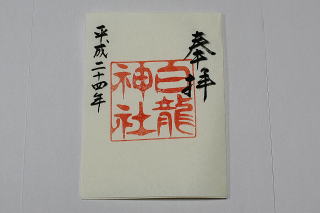 奉拝
白龍
神社
平成二十四年